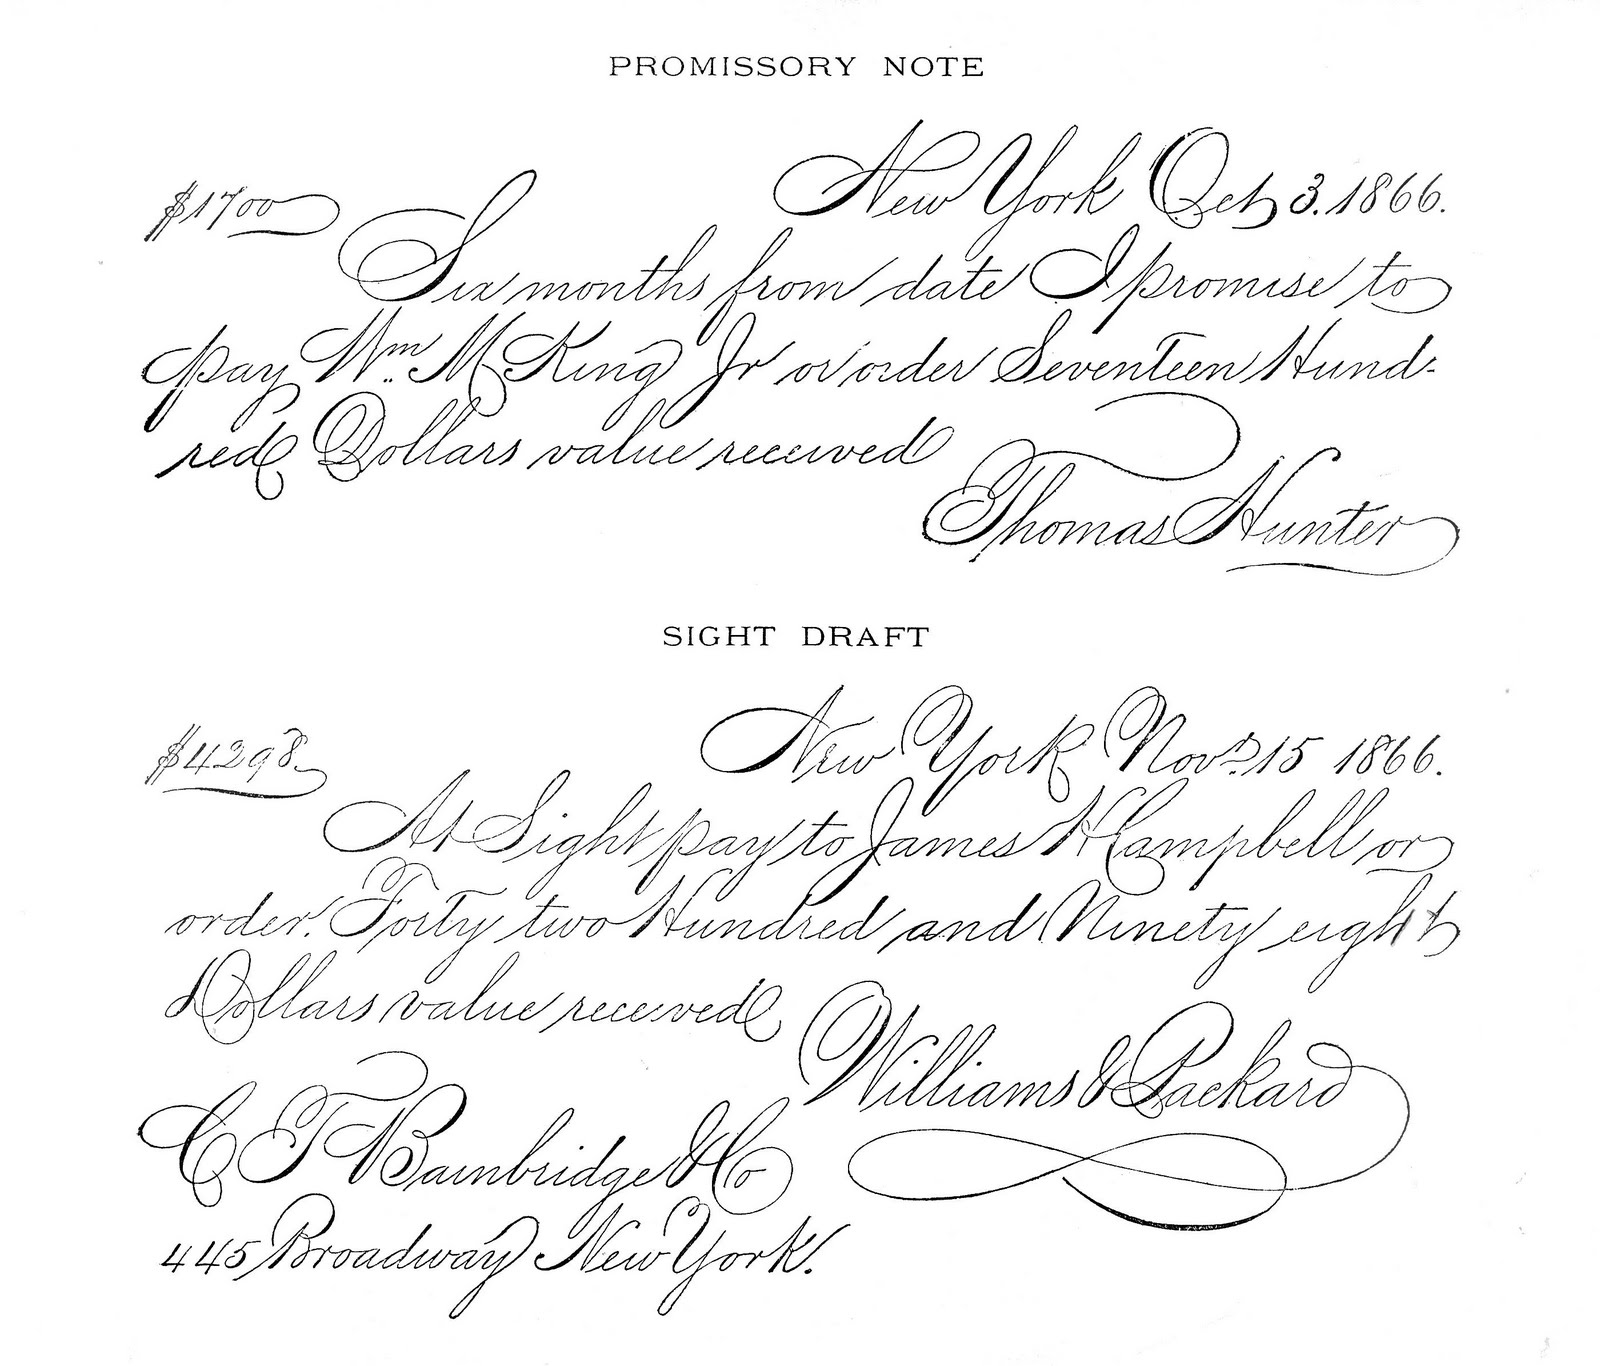 PROMISSORY NOTE
New York Oct 3. 1866.
$1700
Six months from date I promise to
pay Wm. M King Jr or order Seventeen Hund-
red Dollars value received
Thomas Hunter
SIGHT DRAFT
New York Novr. 15 1866.
$4298
At Sight pay to James H Campbell or
order. Forty two Hundred and Ninety eight
Dollars value received
Williams & Packard
C T Bainbridge & Co
445 Broadway New York.